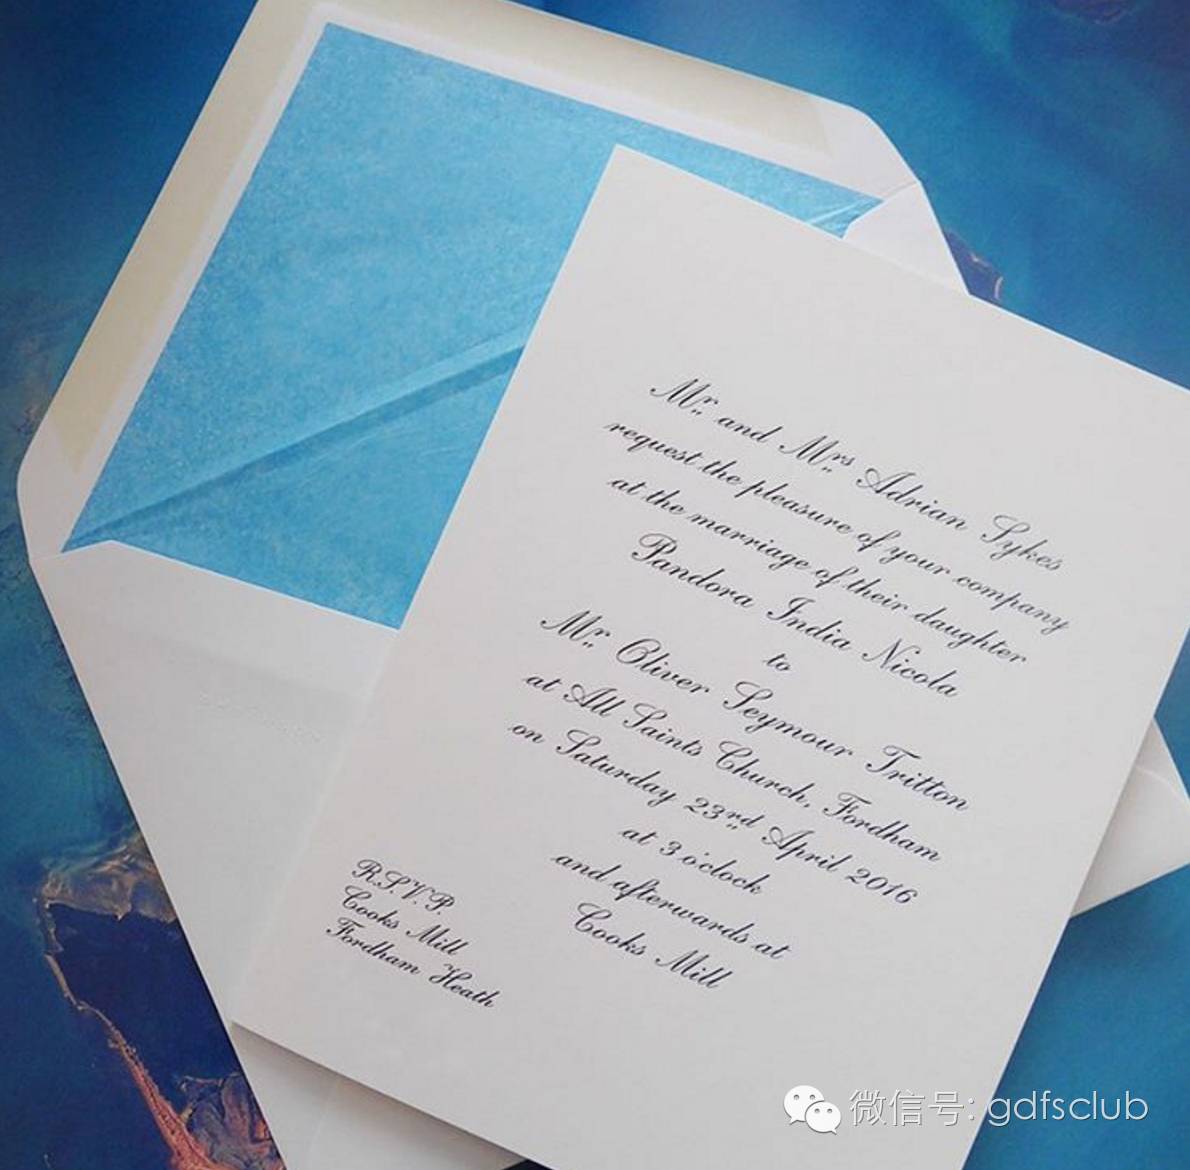 Mr. and Mrs. Adrian Sykes
request the pleasure of your company
at the marriage of their daughter
Pandora India Nicola
to
Mr. Oliver Seymour Tritton
at All Saints Church, Fordham
on Saturday 23rd April 2016
at 3 o'clock
and afterwards at
Cooks Mill
R.S.V.P.
Cooks Mill
Fordham Heath
微信号: gdfsclub